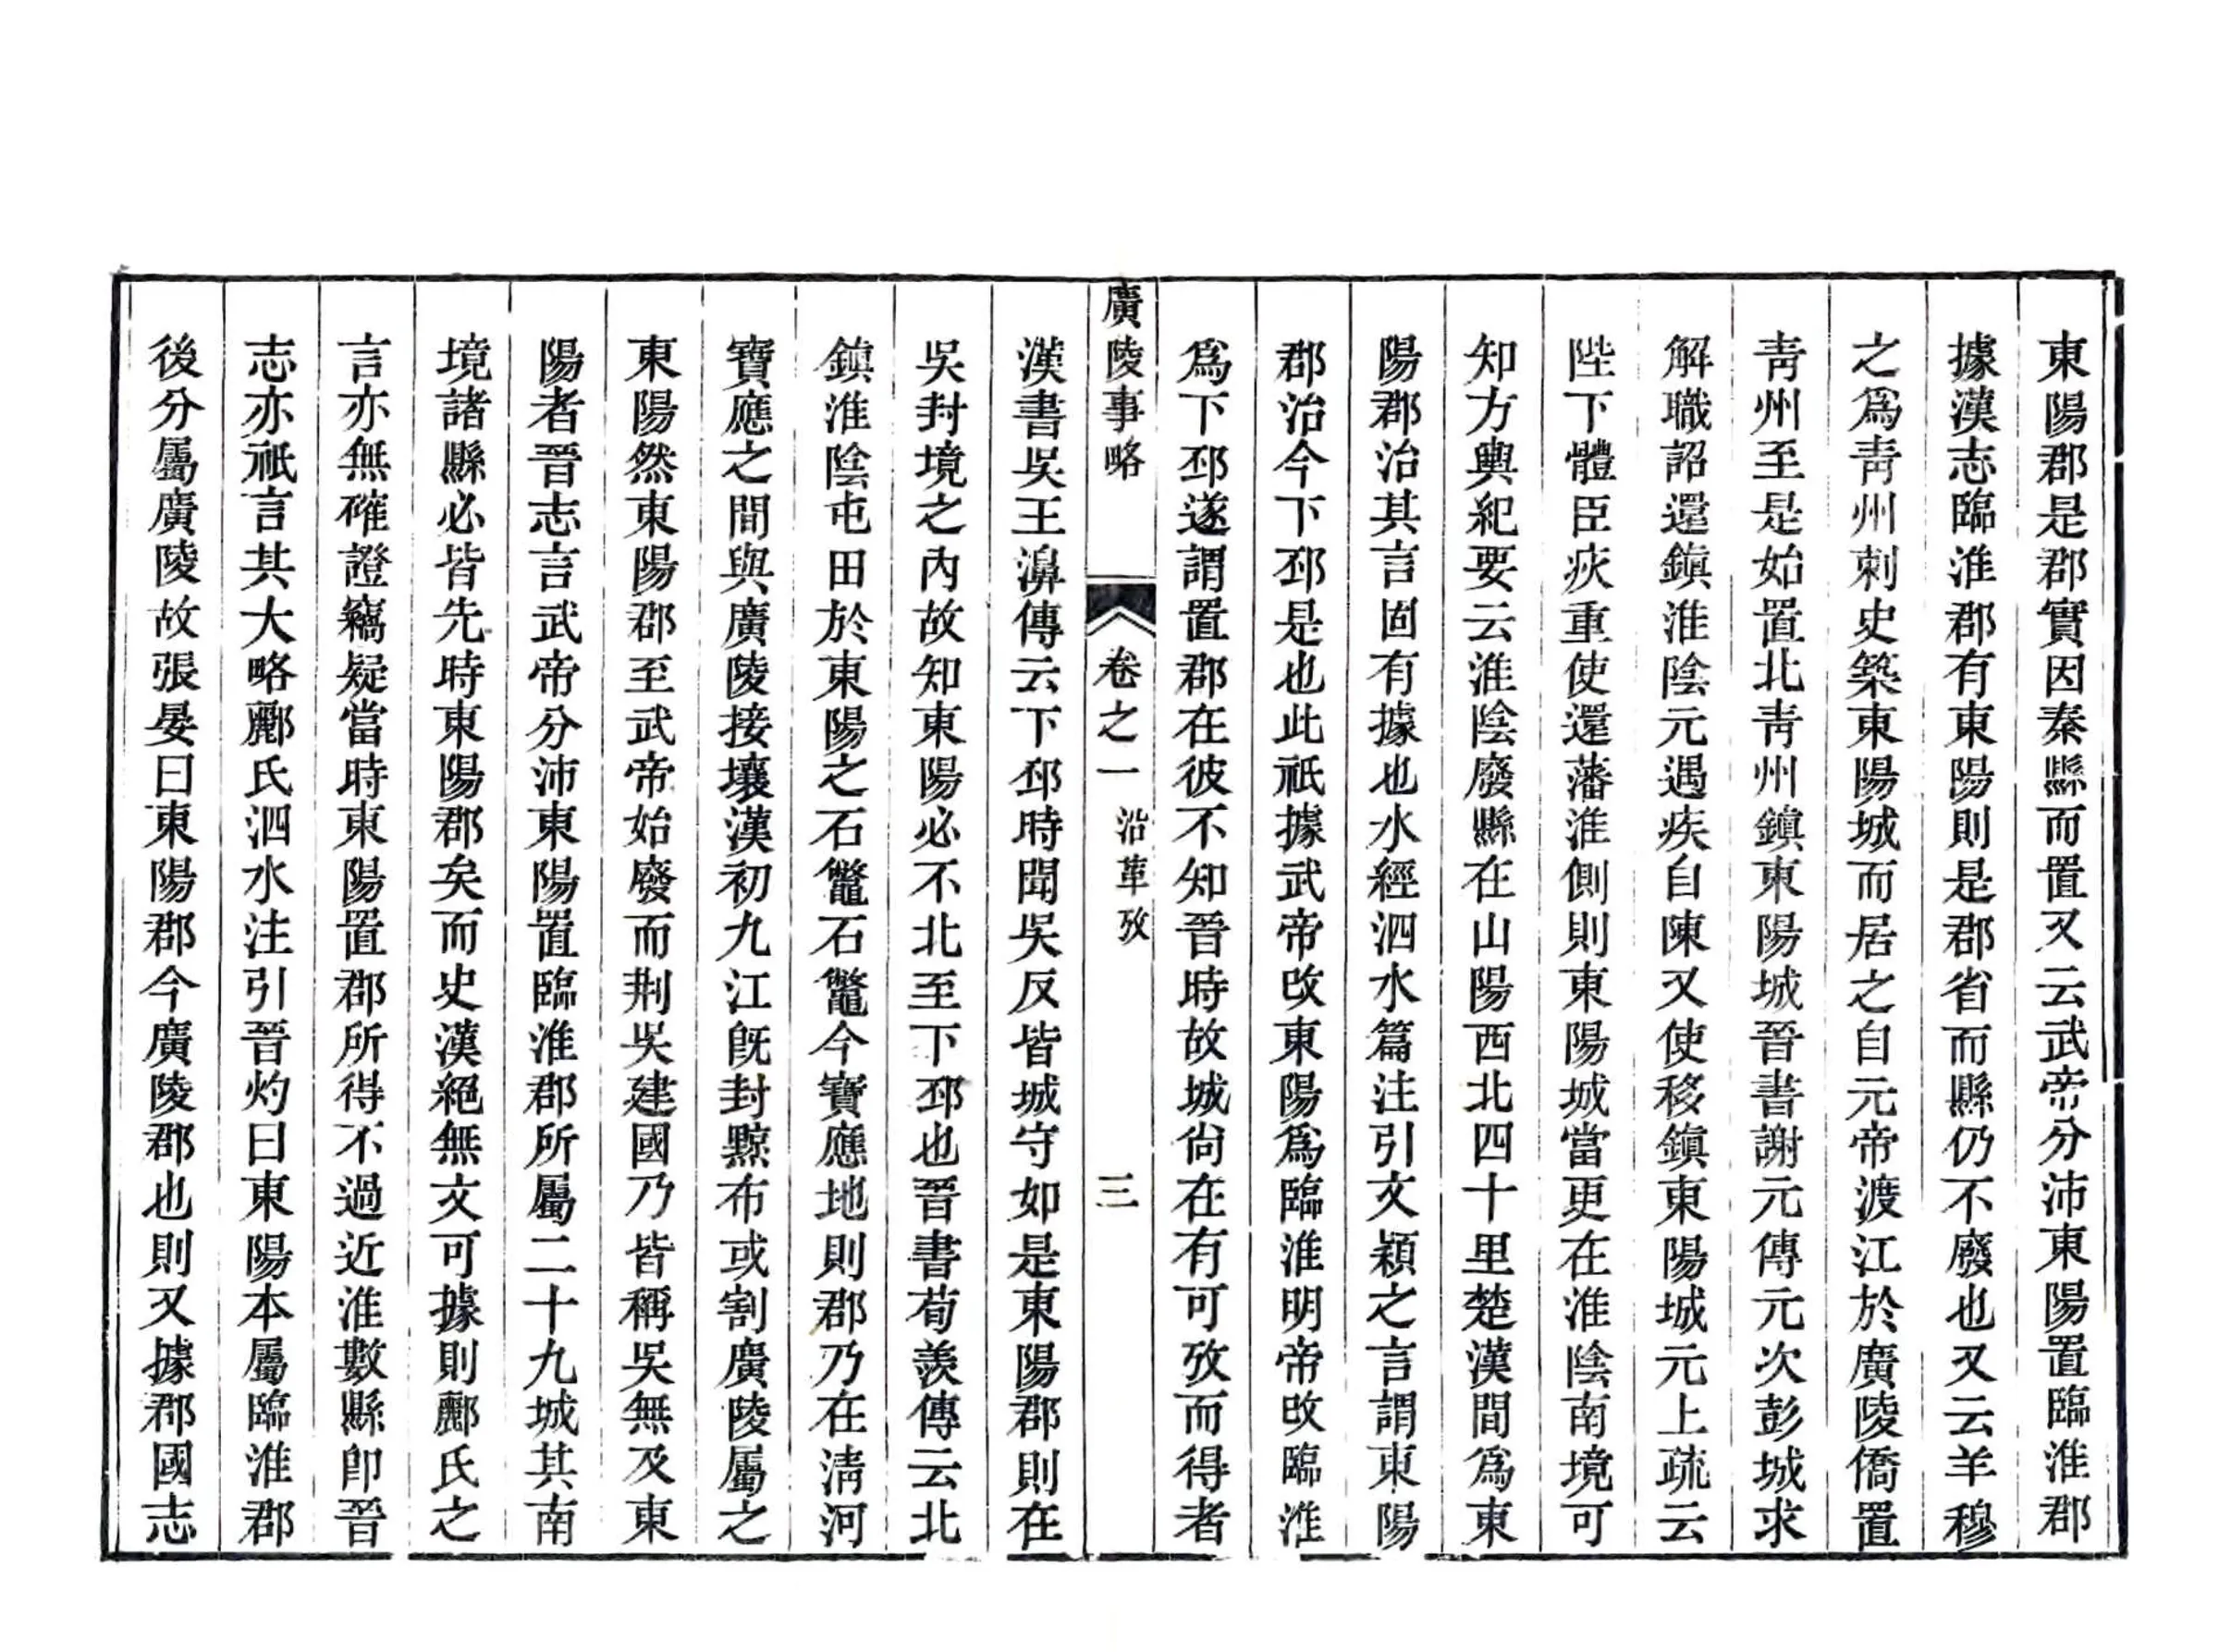 東陽郡是郡實因秦縣而置又云武帝分沛東陽置臨淮郡
據漢志臨淮郡有東陽則是郡省而縣仍不廢也又云羊穆
之爲靑州刺史築東陽城而居之自元帝渡江於廣陵僑置
靑州至是始置北靑州鎮東陽城晉書謝元傳元次彭城求
解職詔還鎮淮陰元遇疾自陳又使移鎮東陽城元上疏云
陛下體臣疢重使還藩淮側則東陽城當更在淮陰南境可
知方輿紀要云淮陰廢縣在山陽西北四十里楚漢間爲東
陽郡治其言固有據也水經泗水篇注引文穎之言謂東陽
郡治今下邳是也此祇據武帝改東陽爲臨淮明帝改臨淮
爲下邳遂謂置郡在彼不知晉時故城尙在有可攷而得者
廣陵事略 卷之一 沿革攷 三
漢書吳王濞傳云下邳時聞吳反皆城守如是東陽郡則在
吳封境之內故知東陽必不北至下邳也晉書荀羨傳云北
鎮淮陰屯田於東陽之石鼈石鼈今寶應地則郡乃在淸河
寶應之間與廣陵接壤漢初九江旣封黥布或割廣陵屬之
東陽然東陽郡至武帝始廢而荆吳建國乃皆稱吳無及東
陽者晉志言武帝分沛東陽置臨淮郡所屬二十九城其南
境諸縣必皆先時東陽郡矣而史漢絕無文可據則酈氏之
言亦無確證竊疑當時東陽置郡所得不過近淮數縣卽晉
志亦祇言其大略酈氏泗水注引晉灼曰東陽本屬臨淮郡
後分屬廣陵故張晏曰東陽郡今廣陵郡也則又據郡國志